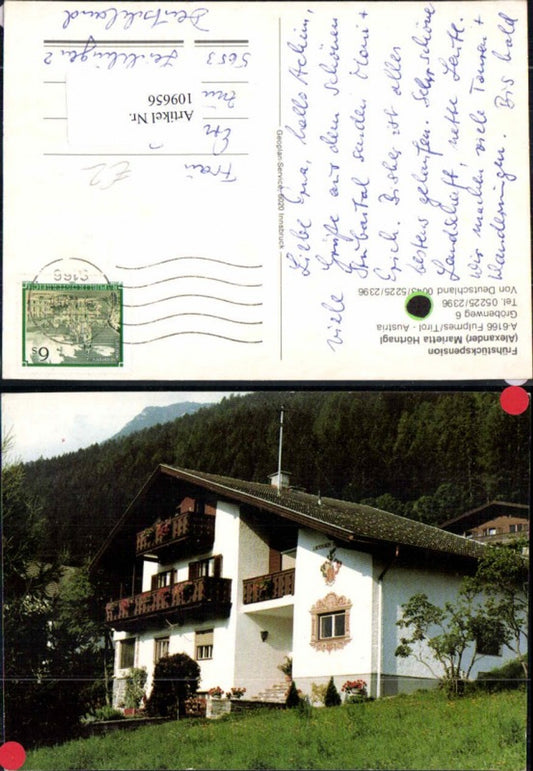 Frühstückspension
(Alexander) Marietta Hörtnagl
A-6166 Fulpmes/Tirol - Austria
Gröbenweg 6
Tel. 05225/2396
Von Deutschland 0043/5225/2396
Liebe Erna, hallo Achim,
viele Grüße aus dem schönen
Stubaital senden Moni +
Erich. Bisher ist alles
bestens gelaufen. Sehr schöne
Landschaft, nette Leute.
Wir machen viele Touren +
Wanderungen. Bis bald
Geoplan-Service, 6020 Innsbruck
Frau
Artikel Nr.
109656
5653
2
Deutschland
6166
6s